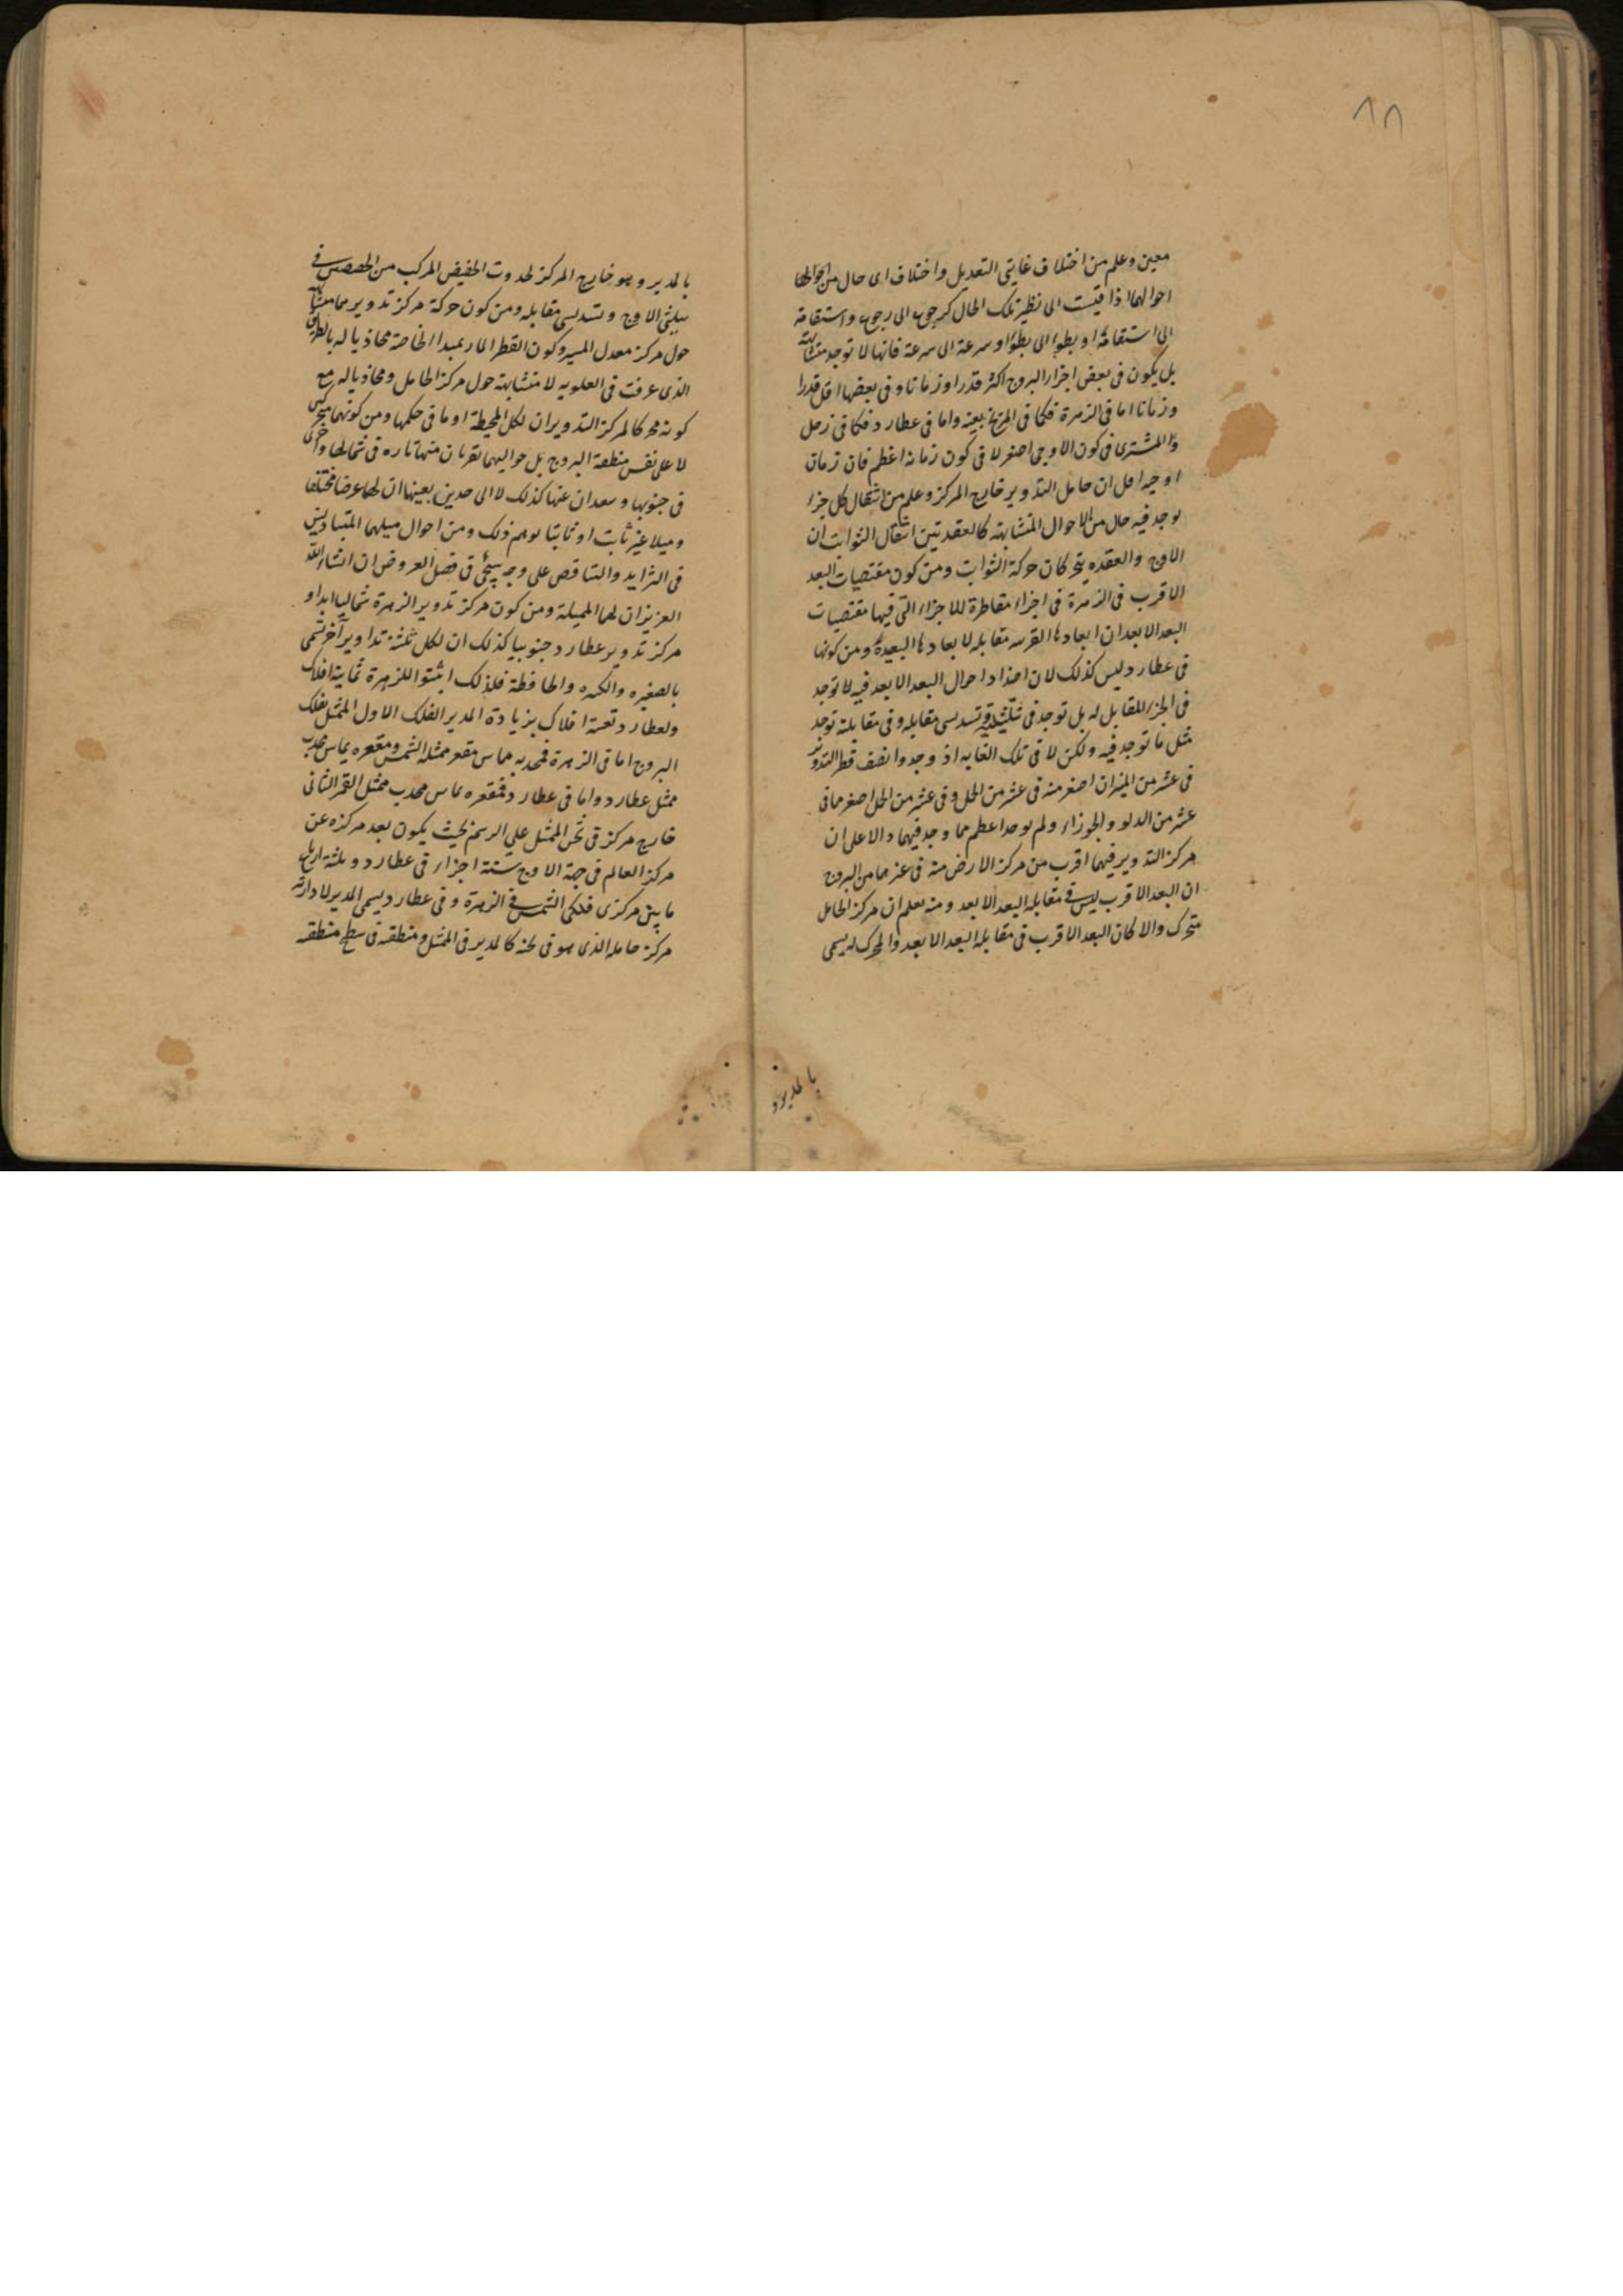 ٨٨
معين وعلم من اختلاف غايتي التعديل واختلاف اى حال من احوالها
احوالهما اذا قيست الى نظير تلك الحال كرجوع الى رجوع واستقامة
الى استقامة او بطؤ الى بطؤ او سرعة الى سرعة فانها لا توجد متشابهة
بل يكون فى بعض اجزاء البروج اكثر قدرا وزمانا وفى بعضها اقل قدرا
وزمانا اما فى الزهرة فكما فى المريخ بعينه واما فى عطارد فكما فى زحل
والمشترى فى كون الاوجى اصغر لا فى كون زمانه اعظم فان زمان
اوجيه اقل ان حامل التدوير خارج المركز وعلم من انتقال كل جزء
يوجد فيه حال من الاحوال المتشابهة كالعقدتين انتقال الثوابت ان
الاوج والعقده يتحركان حركة الثوابت ومن كون مقتضيات البعد
الاقرب فى الزهرة فى اجزاء مقاطرة للاجزاء التى فيها مقتضيات
البعد الابعد ان ابعادها القريبه مقابله لابعادها البعيدة ومن كونها
فى عطارد ليس كذلك لان اضداد احوال البعد الابعد فيه لا توجد
فى الجزء المقابل له بل توجد فى تثليثيه وتسديسى مقابله وفى مقابلة توجد
مثل ما توجد فيه ولكن لا فى تلك الغايه اذ وجدوا نصف قطر التدوير
فى عشر من الميزان اصغر منه فى عشر من الحمل وفى عشر من الحمل اصغر مما فى
عشر من الدلو والجوزاء ولم يوجد اعظم مما وجد فيهما دالا على ان
مركز التدوير فيهما اقرب من مركز الارض منه فى غيرهما من البروج
ان البعد الاقرب ليس فى مقابله البعد الابعد ومنه يعلم ان مركز الحامل
متحرك والا كان البعد الاقرب فى مقابله البعد الابعد والمحرك له يسمى
بالمدير و
بالمدير وهو خارج المركز لحدوث الحضيض المركب من الحضيضين فى
تثليثى الاوج وتسديسى مقابله ومن كون حركة مركز تدويرهما متشابهة
حول مركز معدل المسير وكون القطر المار بمبدا الخاصة محاذيا له بالطريق
الذى عرفت فى العلويه لا متشابهة حول مركز الحامل ومحاذيا له مع
كونه محركا لمركز التدوير ان لكل المحيطة او ما فى حكمها ومن كونهما متحركين
لا على نفس منطقة البروج بل حواليهما تقربان منها تاره فى شمالها واخرى
فى جنوبها وتبعدان عنها كذلك لا الى حدين بعينهما ان لهما عرضا مختلفا
وميلا غير ثابت او ثابتا يوهم ذلك ومن احوال ميلهما المتباديين
فى التزايد والتناقص على وجه سيجئ فى فصل العروض ان انشاء الله
العزيز ان لهما المميلة ومن كون مركز تدوير الزهرة شماليا ابدا و
مركز تدوير عطارد جنوبيا كذلك ان لكل ثلثة تداوير آخر تسمى
بالصغيره والكبيره والحافظة فلذلك اثبتوا للزهرة ثمانية افلاك
ولعطارد تسعة افلاك بزيادة المدير الفلك الاول الممثل بفلك
البروج اما فى الزهرة فمحدبه يماس مقعر ممثله الشمس ومقعره يماس محدب
ممثل عطارد واما فى عطارد فمقعره يماس محدب ممثل القمر الثانى
خارج مركز فى ثخن الممثل على الرسم بحيث يكون بعد مركزه عن
مركز العالم فى جهة الاوج ستة اجزاء فى عطارد وثلثة ارباع
ما بين مركزى فلكى الشمس فى الزهرة وفى عطارد يسمى المدير لادارته
مركز حامله الذى هو فى ثخنه كالمدير فى الممثل ومنطقته فى سطح منطقه